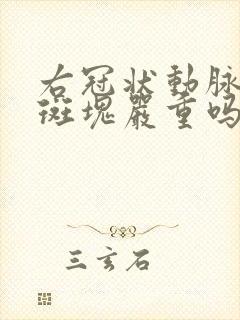 右冠状動脉
斑塊嚴重吗
三玄石